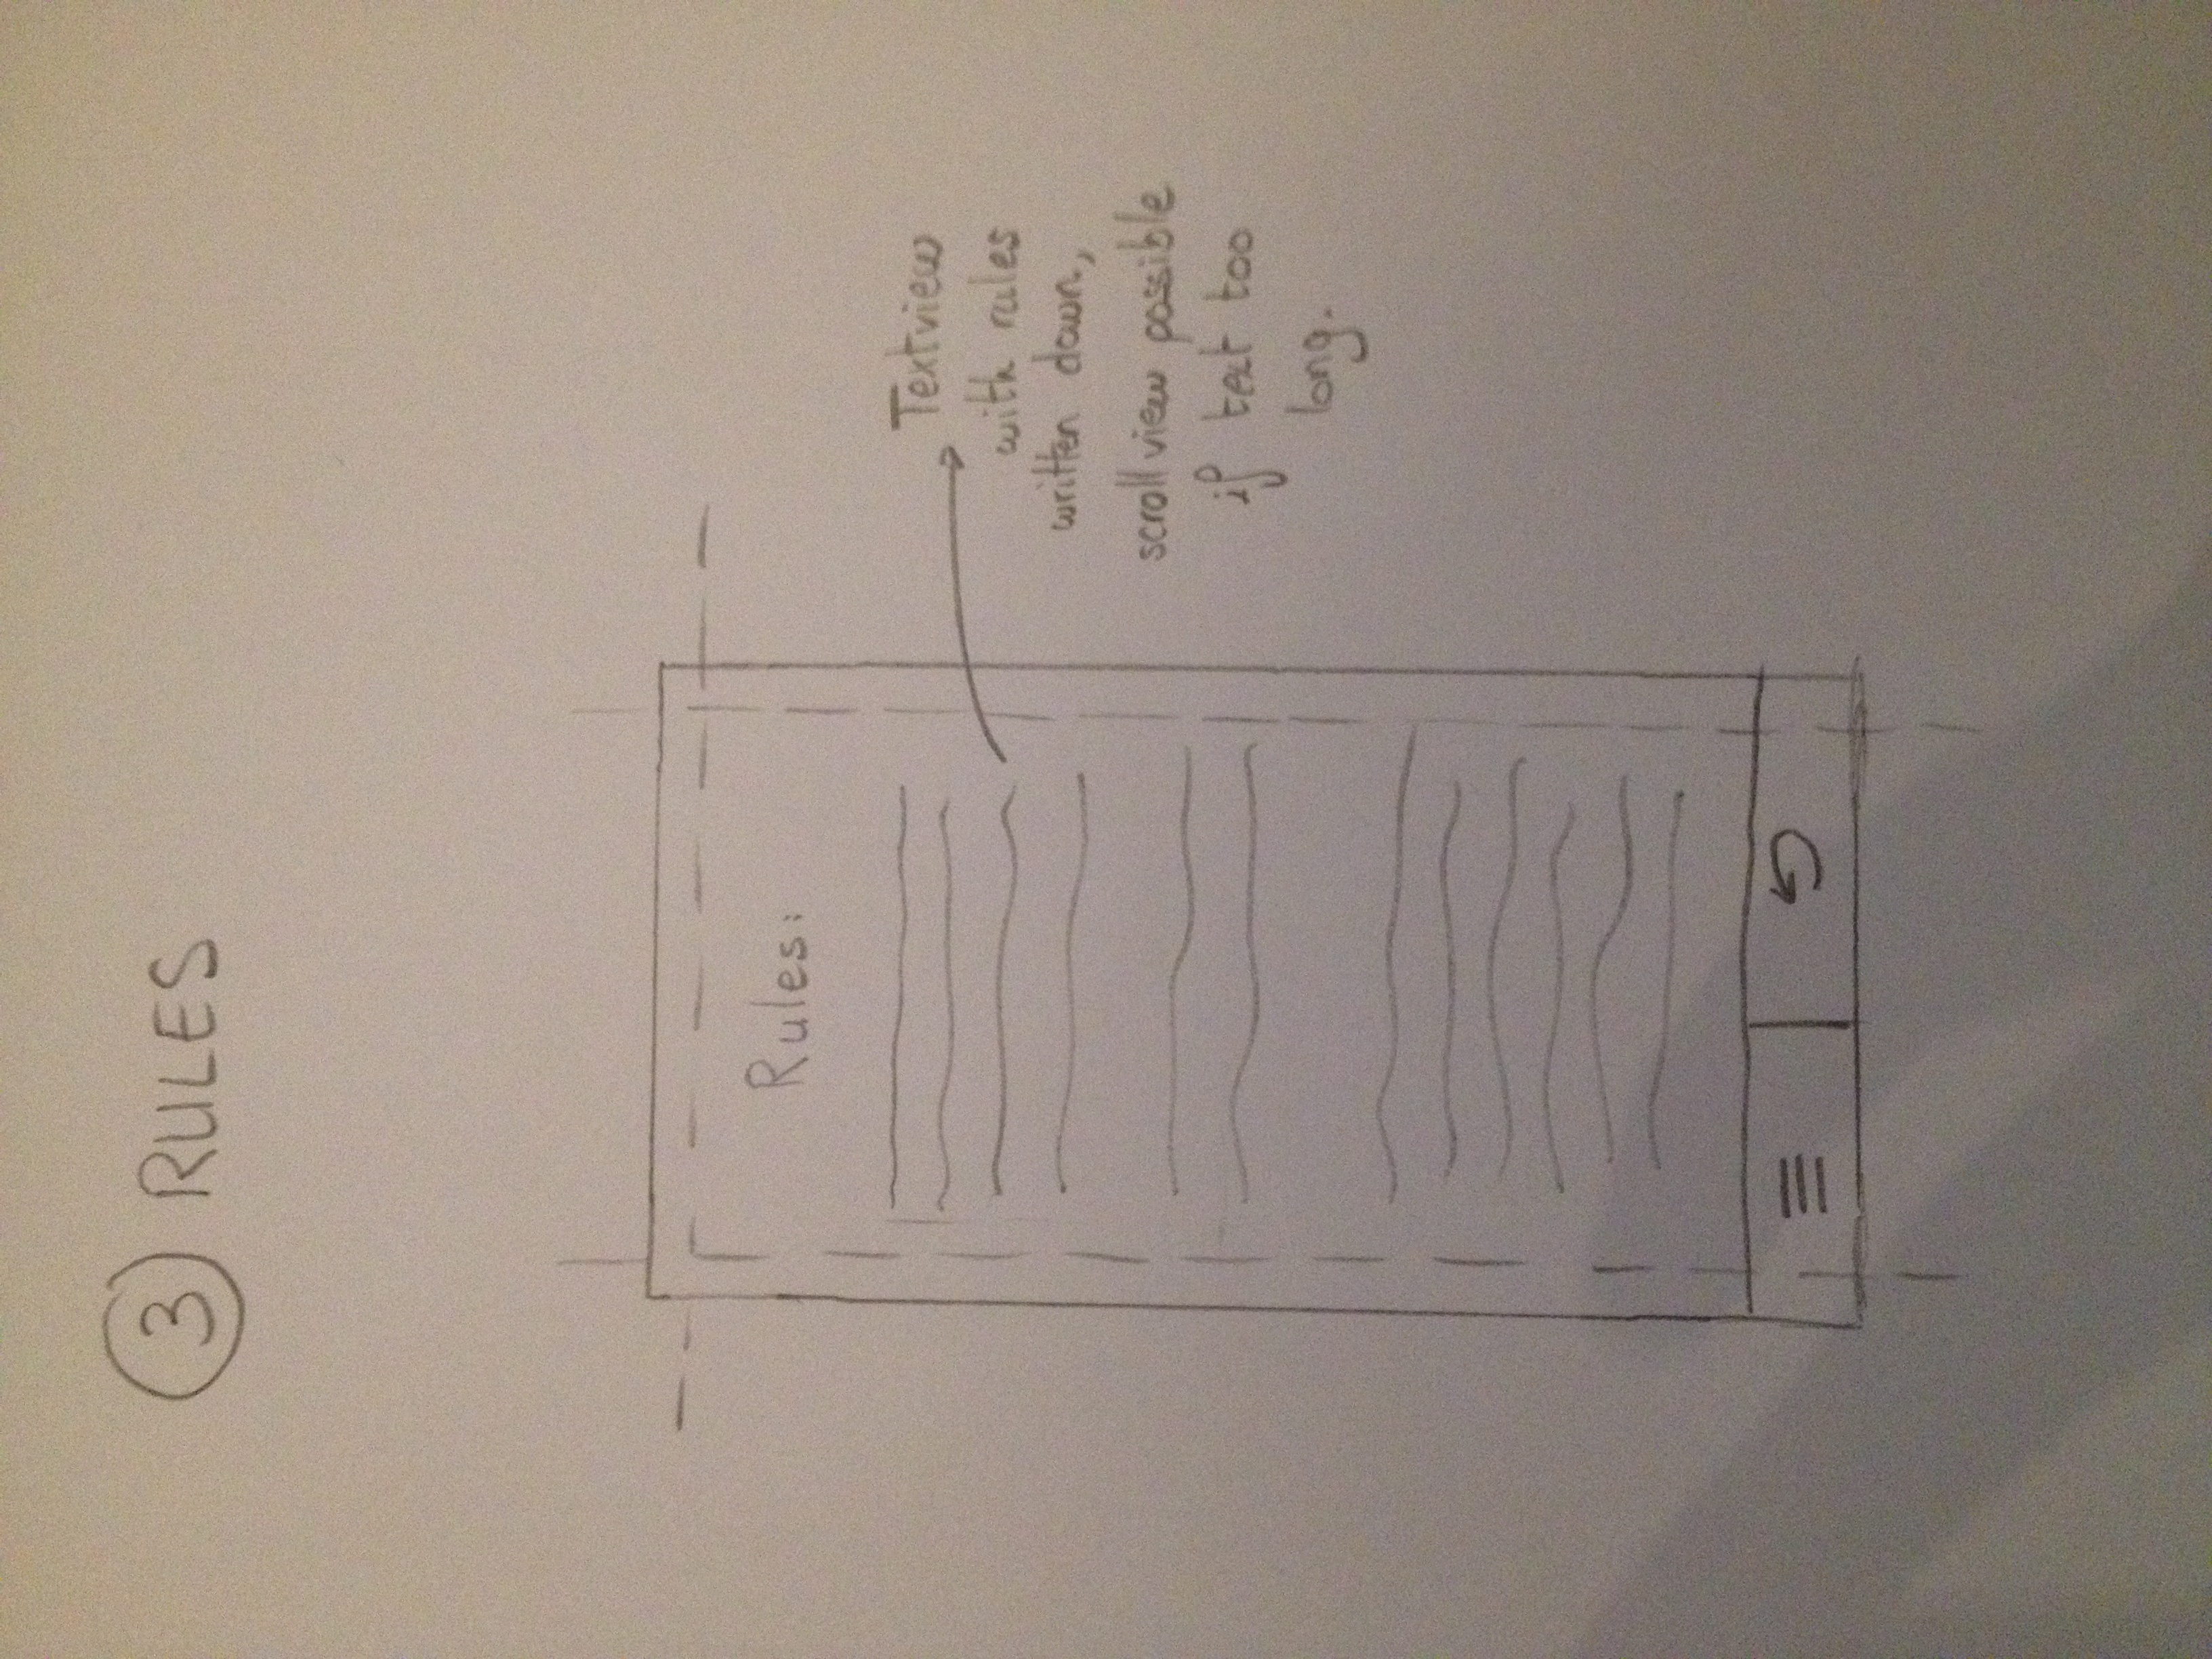 3 RULES
Rules:
Textview
with rules
written down,
scrollview possible
if text too
long.